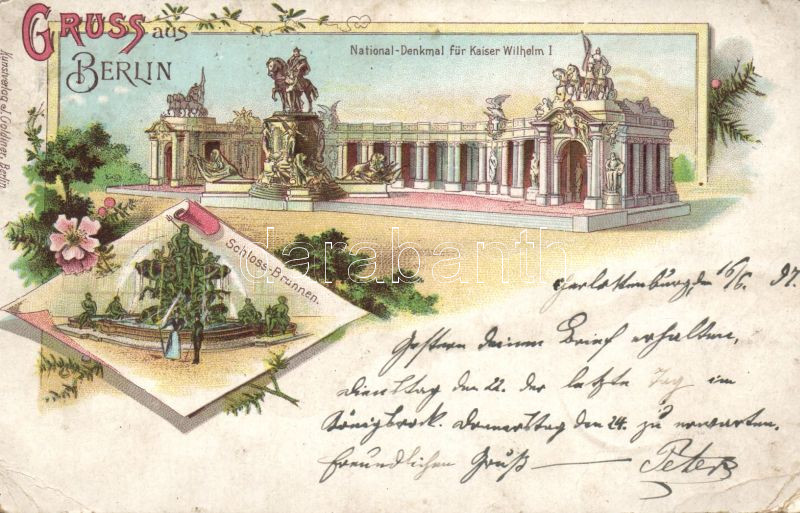 GRUSS aus
BERLIN
National-Denkmal für Kaiser Wilhelm I
Kunstverlag J. Goldiner, Berlin.
Schloss-Brunnen.
darabanth
Charlottenburg, 16/6. 97.
Gestern deinen Brief erhalten,
Dienstag den 22. der letzte Tag im
Königbrock. Donnerstag den 24. zu erwarten.
Freundlichen Gruß — Peter